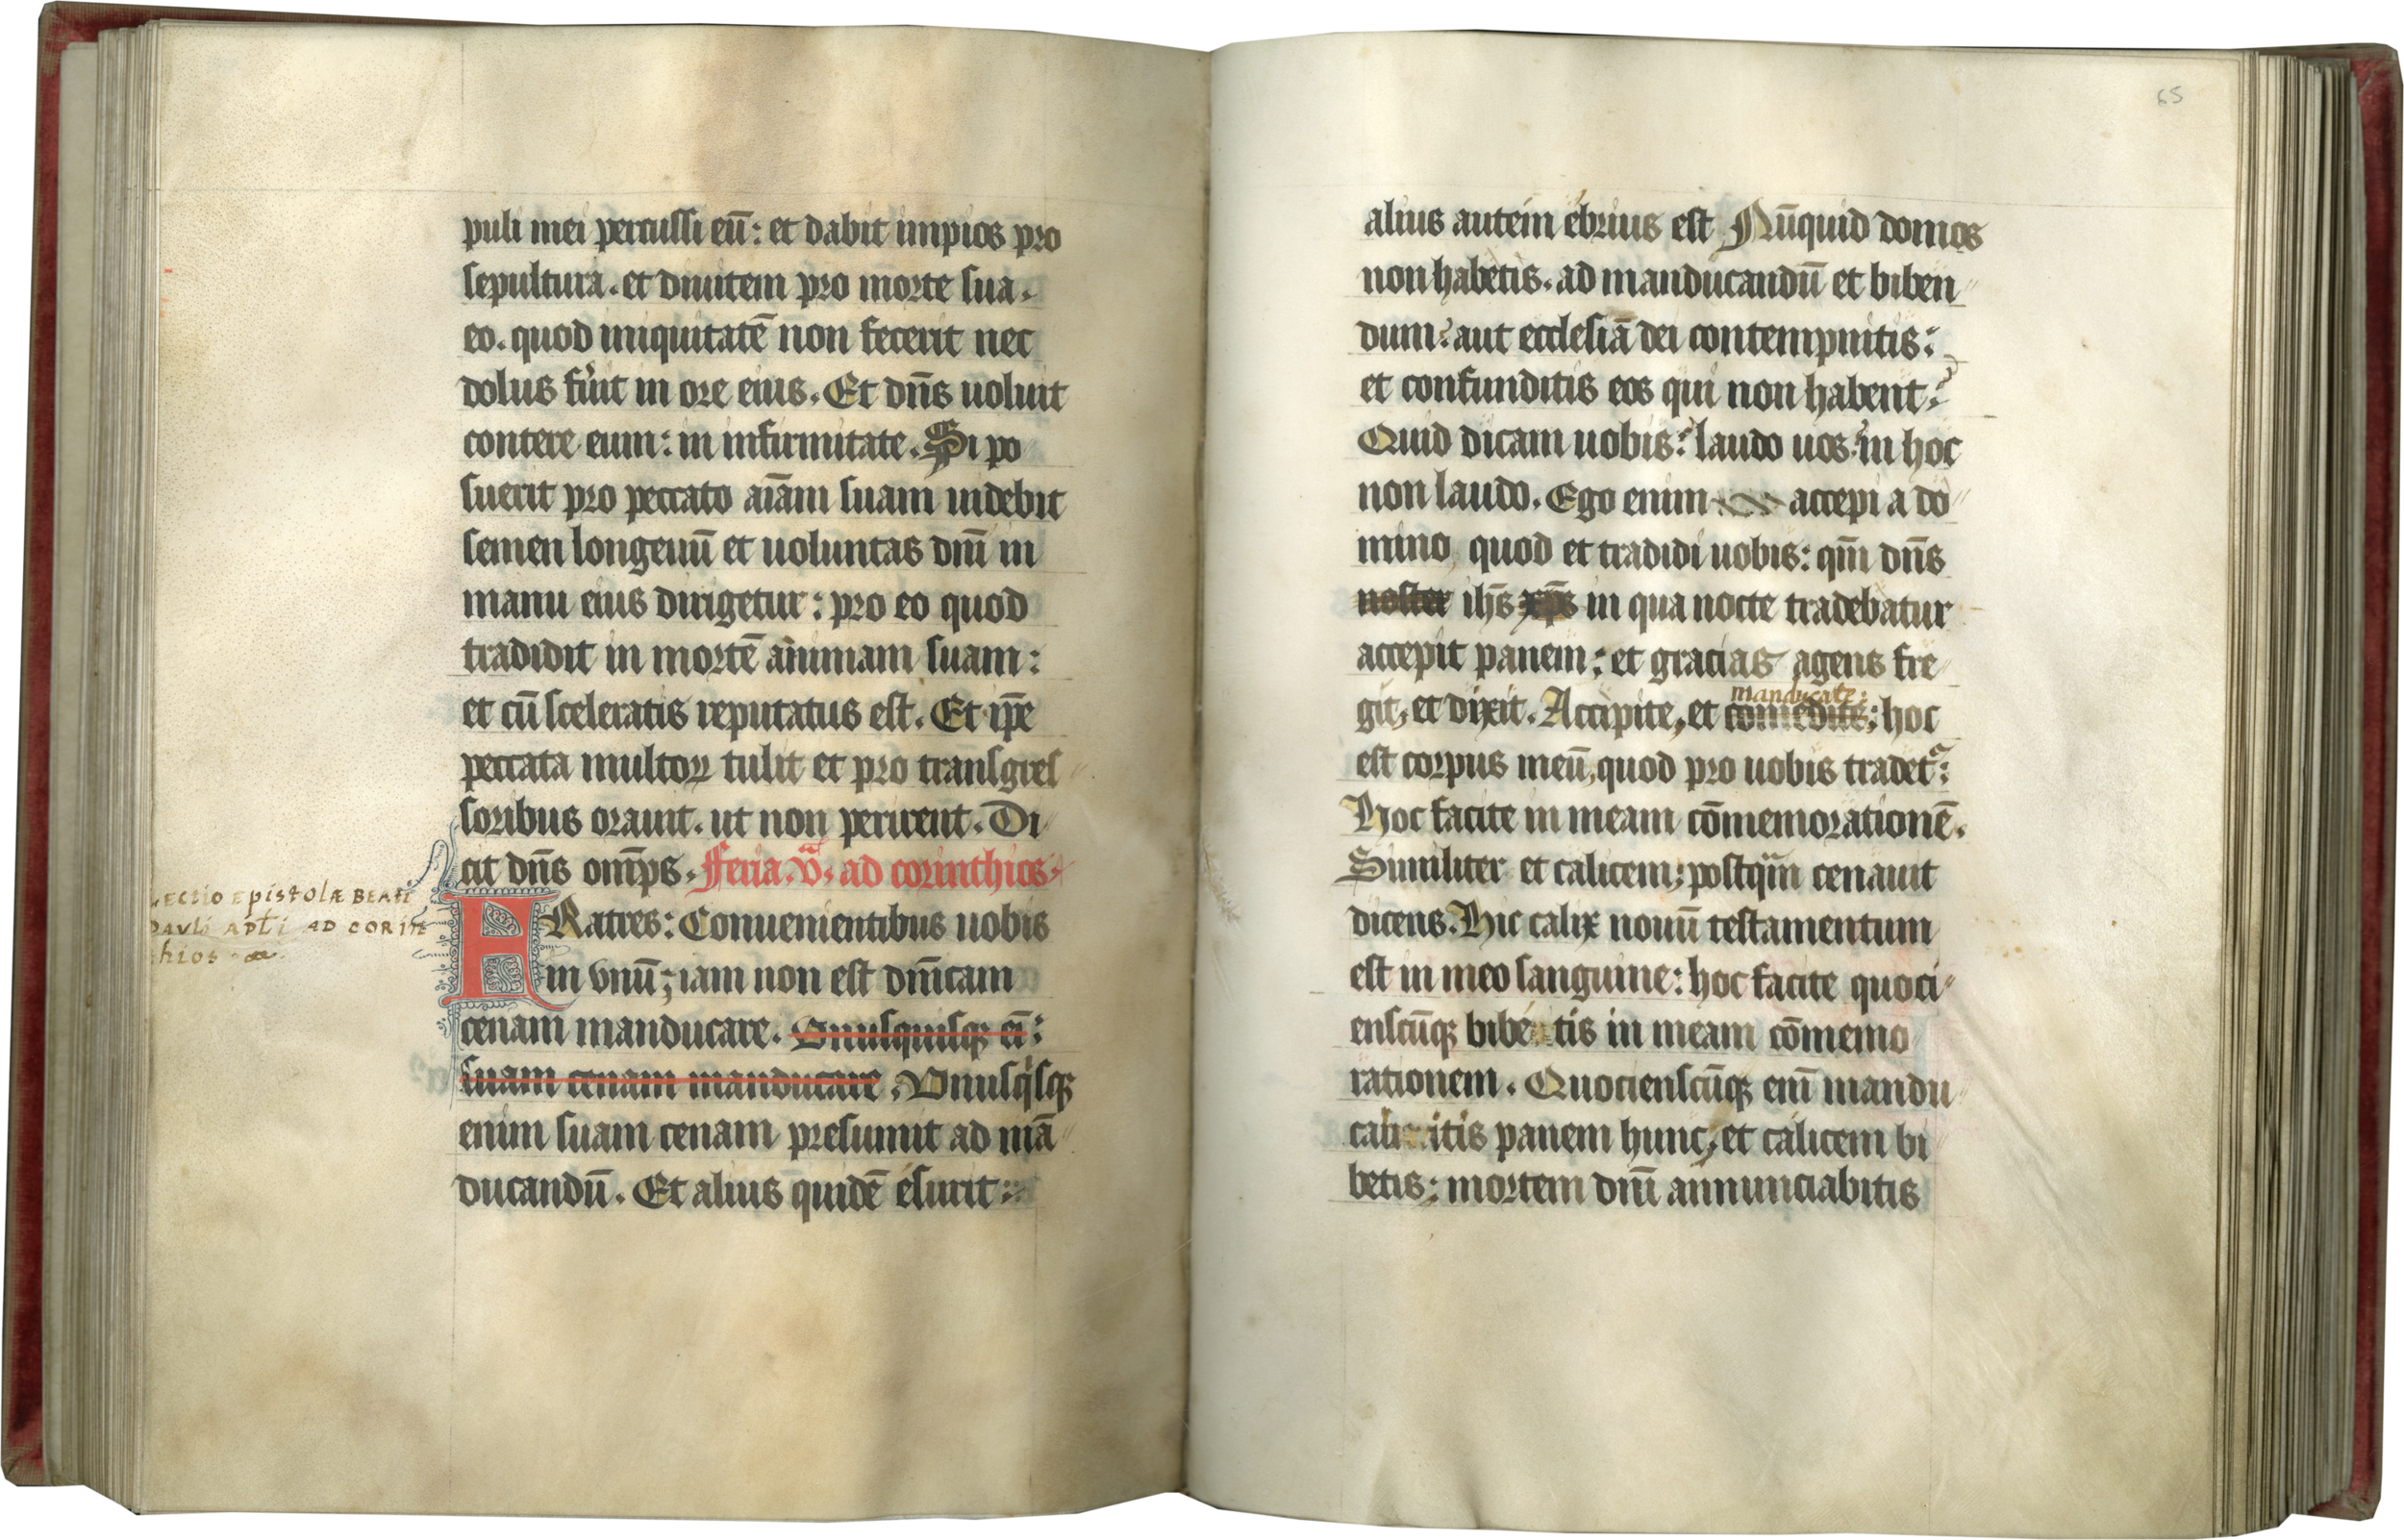 puli mei percussi eū: et dabit impios pro
sepultura. et diuitem pro morte sua.
eo. quod iniquitatē non fecerit nec
dolus fuit in ore eius. Et dn̄s uoluit
contere eum: in infirmitate. Si po
suerit pro peccato aīam suam uidebit
semen longeuū et uoluntas dnī in
manu eius dirigetur: pro eo quod
tradidit in mortē animam suam:
et cū sceleratis reputatus est. Et ip̄e
peccata multoꝝ tulit et pro transgres
soribus orauit. ut non perirent. Di
cit dn̄s omp̄s. Feria. v.ᵃ ad corinthios.
LECTIO EpistolÆ BEATI
PAVLi APL̄i AD CORIN
thios
FRatres: Conuenientibus uobis
in vnū; iam non est dn̄icam
cenam manducare. Vnusquisqꝫ eī:
suam cenam manducare. Vnusqisqꝫ
enim suam cenam presumit ad mā
ducandū. Et alius quidē esurit:
65
alius autem ebrius est Nūquid domos
non habetis. ad manducandū et biben
dum? aut ecclesiā dei contempnitis:
et confunditis eos qui non habent?
Quid dicam uobis? laudo uos? in hoc
non laudo. Ego enim accepi a do
mino quod et tradidi uobis: qm̄ dn̄s
noster ihs̄ xp̄s in qua nocte tradebatur
accepit panem: et gracias agens fre
manducate:
git, et dixit. Accipite, et comedite; hoc
est corpus meū, quod pro uobis tradet᷑:
Hoc facite in meam cōmemorationē.
Similiter et calicem; postqm̄ cenauit
dicens. Hic calix nouū testamentum
est in meo sanguine: hoc facite quoci
enscūqꝫ bibe tis in meam cōmemo
rationem. Quocienscūqꝫ enī mandu
cabi itis panem hunc, et calicem bi
betis: mortem dnī annunciabitis